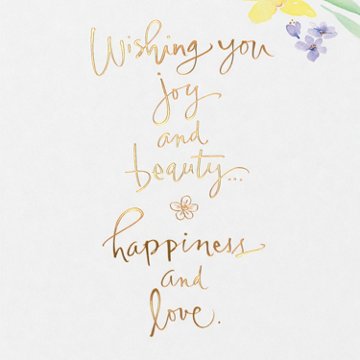 Wishing you
joy
and
beauty...
happiness
and
love.